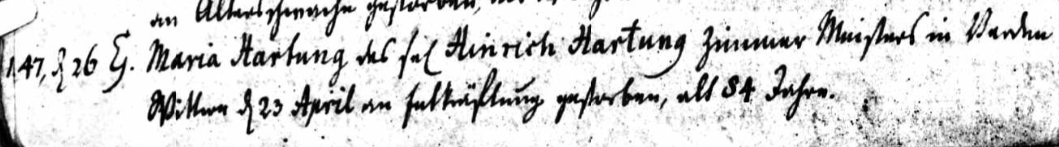 an Altersschwache gestorben,
147, d 26 Ej. Maria Hartung des sel Hinrich Hartung Zimmer Meisters in Verden
Wittwe d 23 April an Entkräftung gestorben, alt 84 Jahre.